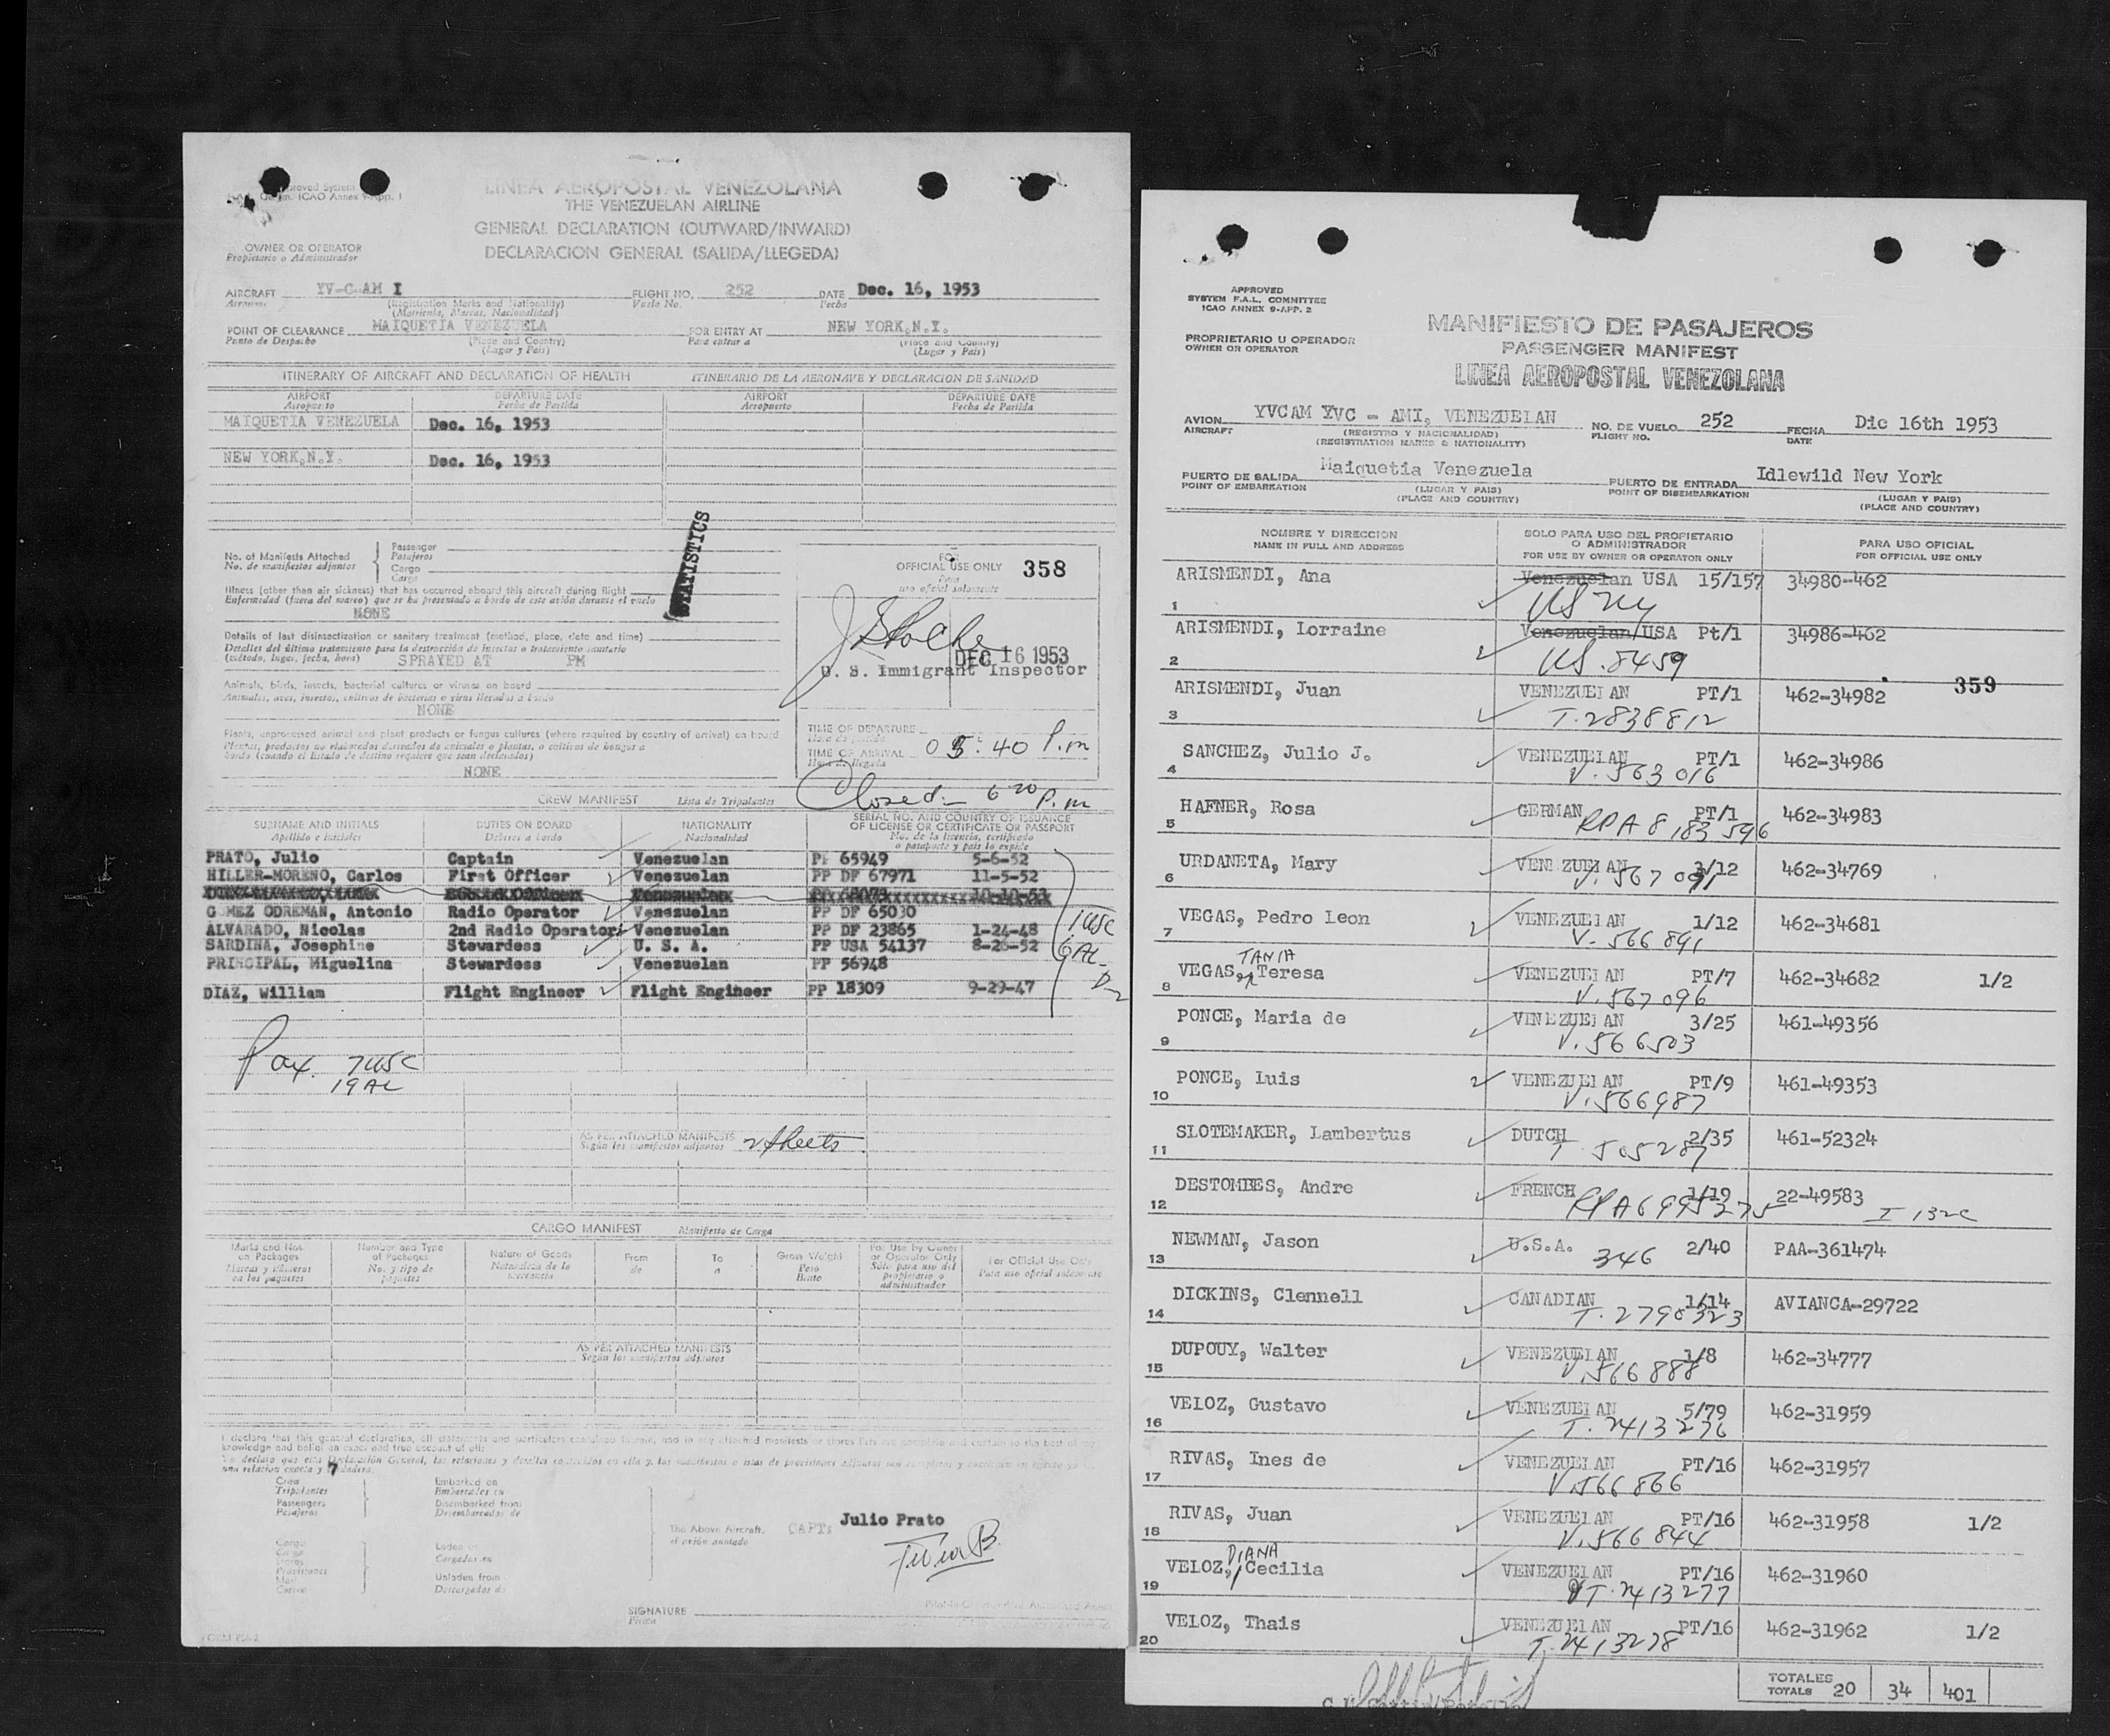 LINEA AEROPOSTAL VENEZOLANA
THE VENEZUELAN AIRLINE
GENERAL DECLARATION (OUTWARD/INWARD)
DECLARACION GENERAL (SALIDA/LLEGEDA)
OWNER OR OPERATOR
Propietario o Administrador
AIRCRAFT YV-C-AM I FLIGHT NO. 252 DATE Dec. 16, 1953
Aeronave (Registration Marks and Nationality) Vuelo No. Fecha
(Matricula, Marcas, Nacionalidad)
POINT OF CLEARANCE MAIQUETIA VENEZUELA FOR ENTRY AT NEW YORK,N.Y.
Punto de Despacho (Place and Country) Para entrar a (Place and Country)
(Lugar y Pais) (Lugar y Pais)
ITINERARY OF AIRCRAFT AND DECLARATION OF HEALTH ITINERARIO DE LA AERONAVE Y DECLARACION DE SANIDAD
AIRPORT DEPARTURE DATE AIRPORT DEPARTURE DATE
Aeropuerto Fecha de Partida Aeropuerto Fecha de Partida
MAIQUETIA VENEZUELA Dec. 16, 1953
NEW YORK,N.Y. Dec. 16, 1953
STATISTICS
No. of Manifests Attached Passenger
No. de manifiestos adjuntos Pasajeros
Cargo
Carga
Illness (other than air sickness) that has occurred aboard this aircraft during flight
Enfermedad (fuera del mareo) que se ha presentado a bordo de este avión durante el vuelo
NONE
Details of last disinsectization or sanitary treatment (method, place, date and time)
Detalles del último tratamiento para la destrucción de insectos o tratamiento sanitario
(método, lugar, fecha, hora) SPRAYED AT PM
Animals, birds, insects, bacterial cultures or viruses on board
Animales, aves, insectos, cultivos de bacterias o virus llevados a bordo
NONE
Plants, unprocessed animal and plant products or fungus cultures (where required by country of arrival) on board
Plantas, productos no elaborados derivados de animales o plantas, o cultivos de hongos a
bordo (cuando el Estado de destino requiere que sean declarados)
NONE
FOR
OFFICIAL USE ONLY 358
Para
uso oficial solamente
DEC 16 1953
U. S. Immigrant Inspector
TIME OF DEPARTURE
TIME OF ARRIVAL 05:40 P.m
Hora de llegada
Closed - 6 20 P.m
CREW MANIFEST Lista de Tripulantes
SURNAME AND INITIALS DUTIES ON BOARD NATIONALITY SERIAL NO. AND COUNTRY OF ISSUANCE
OF LICENSE OR CERTIFICATE OR PASSPORT
Apellido e iniciales Deberes a bordo Nacionalidad No. de la licencia, certificado
o pasaporte y pais lo expide
PRATO, Julio Captain Venezuelan PP 65949 5-6-52
HILLER-MORENO, Carlos First Officer Venezuelan PP DF 67971 11-5-52
GOMEZ ODREMAN, Antonio Radio Operator Venezuelan PP DF 65030
ALVARADO, Nicolas 2nd Radio Operator Venezuelan PP DF 23865 1-24-48
SARDINA, Josephine Stewardess U. S. A. PP USA 54137 8-26-52
PRINCIPAL, Miguelina Stewardess Venezuelan PP 56948
DIAZ, William Flight Engineer Flight Engineer PP 18309 9-29-47
1 USC
6 AL-
D-2
Pax. 7 USC
19 AL
AS PER ATTACHED MANIFESTS 2 sheets
Según los manifiestos adjuntos
CARGO MANIFEST Manifiesto de Carga
Marks and Nos. on Packages
Number and Type of Packages
No. y tipo de paquetes
Nature of Goods
Naturaleza de la mercancia
From
de
To
a
Gross Weight
Peso
Bruto
For Use by Owner or Operator Only
Sólo para uso del propietario o administrador
For Official Use Only
Para uso oficial solamente
AS PER ATTACHED MANIFESTS
Según los manifiestos adjuntos
I declare that this general declaration, all statements and particulars contained therein, and in any attached manifests or stores lists are complete and
knowledge and belief an exact and true account of all:
Crew Embarked on
Tripulantes Embarcados en
Passengers Disembarked from
Pasajeros Desembarcados de
Cargo Laden on
Carga Cargados en
Stores
Provisiones
Mail Unladen from
Correo Descargados de
The Above Aircraft, CAPT: Julio Prato
el avión anotado
SIGNATURE
Firma
APPROVED
SYSTEM F.A.L. COMMITTEE
ICAO ANNEX 9-APP. 2
PROPRIETARIO U OPERADOR
OWNER OR OPERATOR
MANIFIESTO DE PASAJEROS
PASSENGER MANIFEST
LINEA AEROPOSTAL VENEZOLANA
AVION YVCAM YVC - AMI, VENEZUELAN NO. DE VUELO 252 FECHA Dic 16th 1953
AIRCRAFT (REGISTRO Y NACIONALIDAD) FLIGHT NO. DATE
(REGISTRATION MARKS & NATIONALITY)
PUERTO DE SALIDA Maiquetia Venezuela PUERTO DE ENTRADA Idlewild New York
POINT OF EMBARKATION (LUGAR Y PAIS) POINT OF DISEMBARKATION (LUGAR Y PAIS)
(PLACE AND COUNTRY) (PLACE AND COUNTRY)
NOMBRE Y DIRECCION SOLO PARA USO DEL PROPIETARIO
O ADMINISTRADOR PARA USO OFICIAL
NAME IN FULL AND ADDRESS FOR USE BY OWNER OR OPERATOR ONLY FOR OFFICIAL USE ONLY
ARISMENDI, Ana Venezuelan USA 15/157 34980-462
1
ARISMENDI, Lorraine Venezuelan/USA Pt/1 34986-462
2 US.8459
ARISMENDI, Juan VENEZUELAN PT/1 462-34982 359
3 T.2838812
SANCHEZ, Julio J. VENEZUELAN PT/1 462-34986
4 V.563016
HAFNER, Rosa GERMAN PT/1 462-34983
5 RPA 8183596
URDANETA, Mary VENEZUELAN 3/12 462-34769
6 V.567091
VEGAS, Pedro Leon VENEZUELAN 1/12 462-34681
7 V-566891
VEGAS, TANIA Teresa VENEZUELAN PT/7 462-34682 1/2
8 V.567096
PONCE, Maria de VENEZUELAN 3/25 461-49356
9 V.566503
PONCE, Luis VENEZUELAN PT/9 461-49353
10 V.566987
SLOTEMAKER, Lambertus DUTCH 2/35 461-52324
11 T 505287
DESTOMBES, Andre FRENCH 1/19 22-49583
12 RPA6995275 I 132c
NEWMAN, Jason U.S.A. 346 2/40 PAA-361474
13
DICKINS, Clennell CANADIAN 1/14 AVIANCA-29722
14 T.2790323
DUPOUY, Walter VENEZUELAN 1/8 462-34777
15 V.566888
VELOZ, Gustavo VENEZUELAN 5/79 462-31959
16 T.2413276
RIVAS, Ines de VENEZUELAN PT/16 462-31957
17 V.566866
RIVAS, Juan VENEZUELAN PT/16 462-31958 1/2
18 V.566844
VELOZ, DIANA Cecilia VENEZUELAN PT/16 462-31960
19 T.2413277
VELOZ, Thais VENEZUELAN PT/16 462-31962 1/2
20 T.2413278
TOTALES
TOTALS 20 34 401